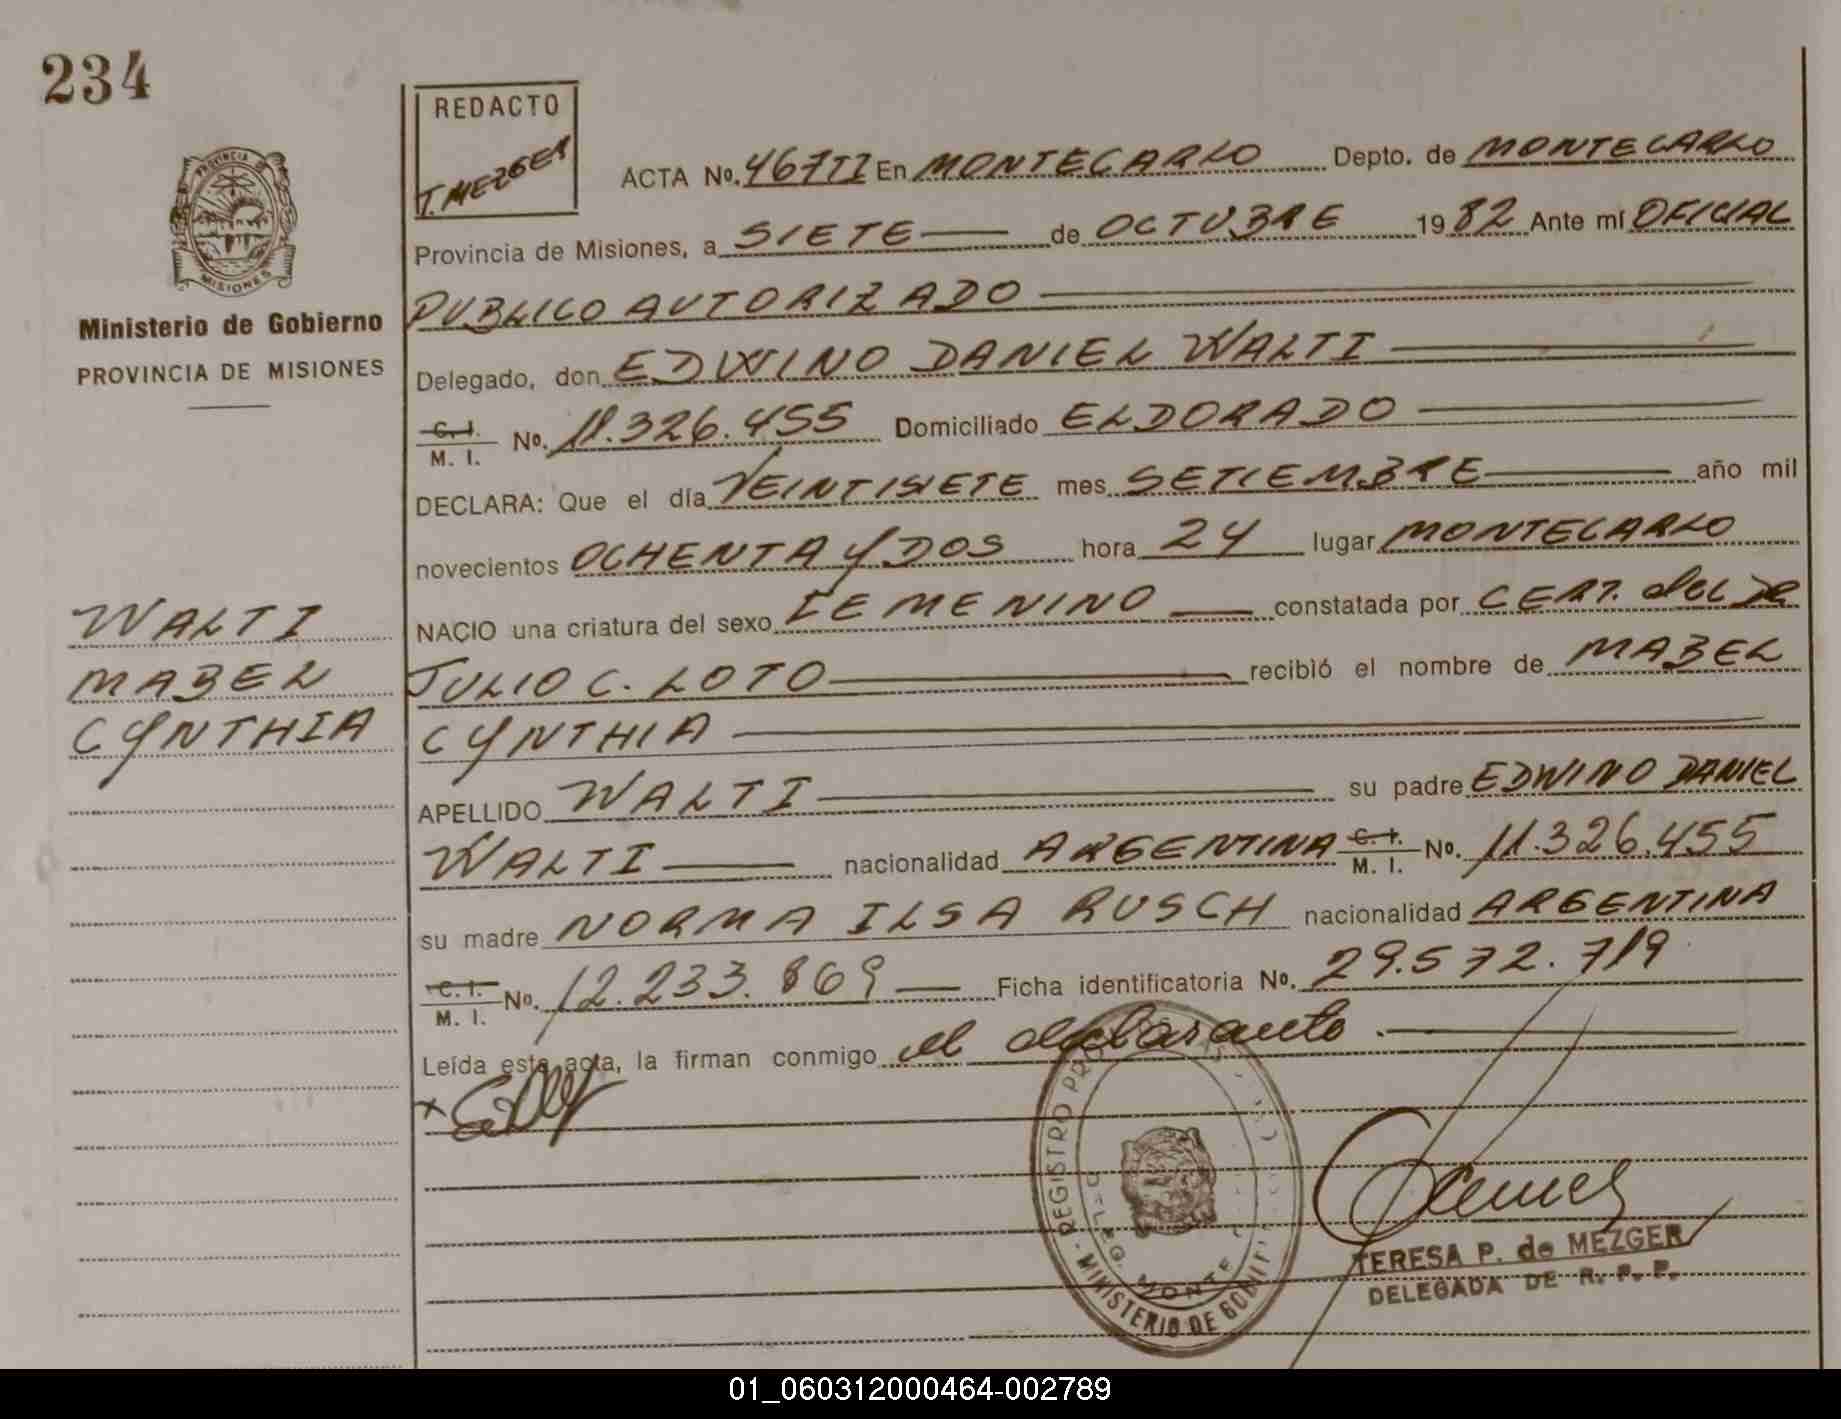 234
REDACTO
T. MEZGER
PROVINCIA DE
MISIONES
Ministerio de Gobierno
PROVINCIA DE MISIONES
ACTA No. 467TI En MONTECARLO Depto. de MONTECARLO
Provincia de Misiones, a SIETE de OCTUBRE 1982 Ante mí OFICIAL
PUBLICO AUTORIZADO
Delegado, don EDWINO DANIEL WALTI
C. I. M. I. No. 11.326.455 Domiciliado ELDORADO
DECLARA: Que el día VEINTISIETE mes SETIEMBRE año mil
novecientos OCHENTA Y DOS hora 24 lugar MONTECARLO
NACIO una criatura del sexo FEMENINO constatada por CERT. del DR
JULIO C. LOTO recibió el nombre de MABEL
CYNTHIA
APELLIDO WALTI su padre EDWINO DANIEL
WALTI nacionalidad ARGENTINA C. I. M. I. No. 11.326.455
su madre NORMA ILSA RUSCH nacionalidad ARGENTINA
C. I. M. I. No. 12.233.869 Ficha identificatoria No. 29.572.719
Leída esta acta, la firman conmigo el declarante.
WALTI
MABEL
CYNTHIA
REGISTRO
MINISTERIO DE
DELEG. MONTE
TERESA P. de MEZGER
DELEGADA DE R. P. P.
01_060312000464-002789